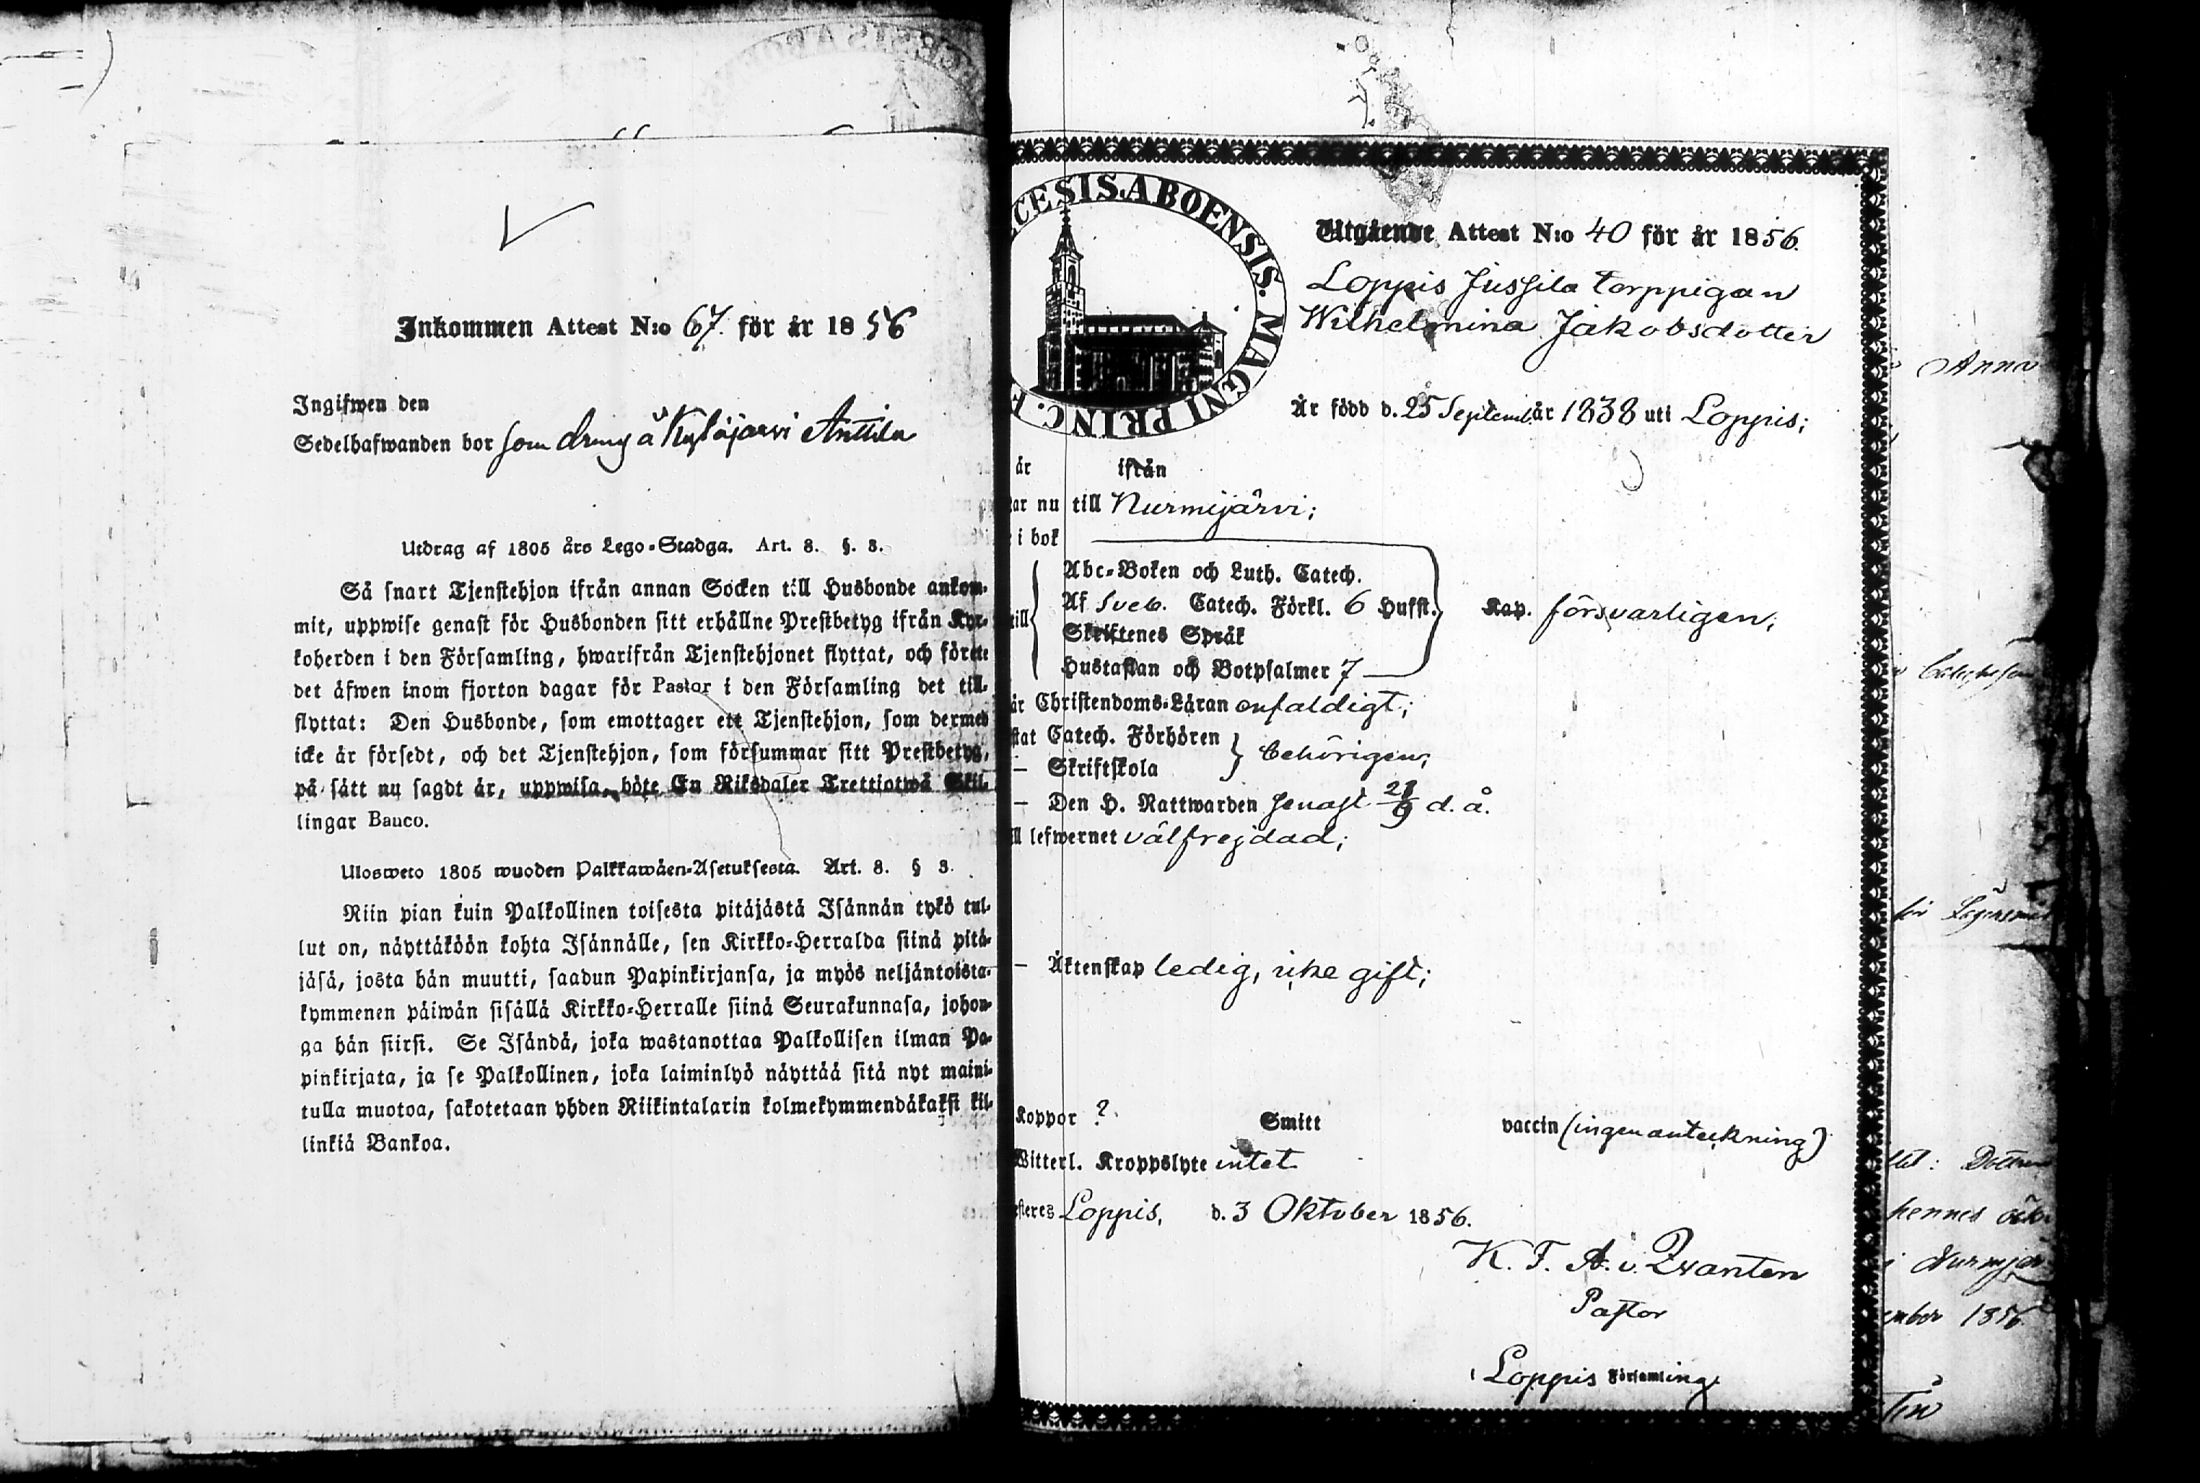 Inkommen Attest N:o 67. för år 1856
Ingifwen den
Sedelhafwanden bor som dräng å Kyläjärvi Anttila
Utdrag af 1805 års Lego-Stadga. Art. 8. §. 3.
Så snart Tjenstehjon ifrån annan Socken till Husbonde ankom-
mit, uppwise genast för Husbonden sitt erhållne Prestbetyg ifrån Kyr-
koherden i den Församling, hwarifrån Tjenstehjonet flyttat, och förete
det äfwen inom fjorton dagar för Pastor i den Församling det till-
flyttat: Den Husbonde, som emottager ett Tjenstehjon, som dermed
icke är försedt, och det Tjenstehjon, som försummar sitt Prestbetyg,
på sätt nu sagdt är, uppwisa, böte En Riksdaler Trettiotwå Skil-
lingar Banco.
Ulosweto 1805 wuoden Palkkawäen-Asetuksesta. Art. 8. § 3.
Niin pian kuin Palkollinen toisesta pitäjästä Isännän tykö tul-
lut on, näyttäköön kohta Isännälle, sen Kirkko-Herralda siinä pitä-
jäsä, josta hän muutti, saadun Papinkirjansa, ja myös neljäntoista-
kymmenen päiwän sisällä Kirkko-Herralle siinä Seurakunnasa, johon-
ga hän siirsi. Se Isändä, joka wastanottaa Palkollisen ilman Pa-
pinkirjata, ja se Palkollinen, joka laiminlyö näyttää sitä nyt maini-
tulla muotoa, sakotetaan yhden Riikintalarin kolmekymmendäkaksi kil-
linkiä Bankoa.
CESIS.ABOENSIS. MAGNI PRINC. F
Utgående Attest N:o 40 för år 1856.
Loppis Jussila torppigan
Wilhelmina Jakobsdotter
Är född d. 25 Septemb. år 1838 uti Loppis;
år ifrån
tar nu till Nurmijärvi;
i bok
Abc-Boken och Luth. Catech.
till Af Sveb. Catech. Förkl. 6 Hufst. Kap. försvarligen;
Skriftenes Språk
Hustaflan och Botpsalmer 7
är Christendoms-Läran enfaldigt;
stat Catech. Förhören
— Skriftskola behörigen;
— Den H. Nattwarden senast 28/9 d. å.
ll lefwernet välfrejdad;
— Äktenskap ledig, icke gift;
Koppor ? Smitt vaccin (ingen anteckning)
Witterl. Kroppslyte intet
esteres Loppis, d. 3 Oktober 1856.
K. F. A. v. Zvanten
Pastor
i Loppis Församling.
Anna
för
Dottern
hennes
i Nurmijär
ember 1856